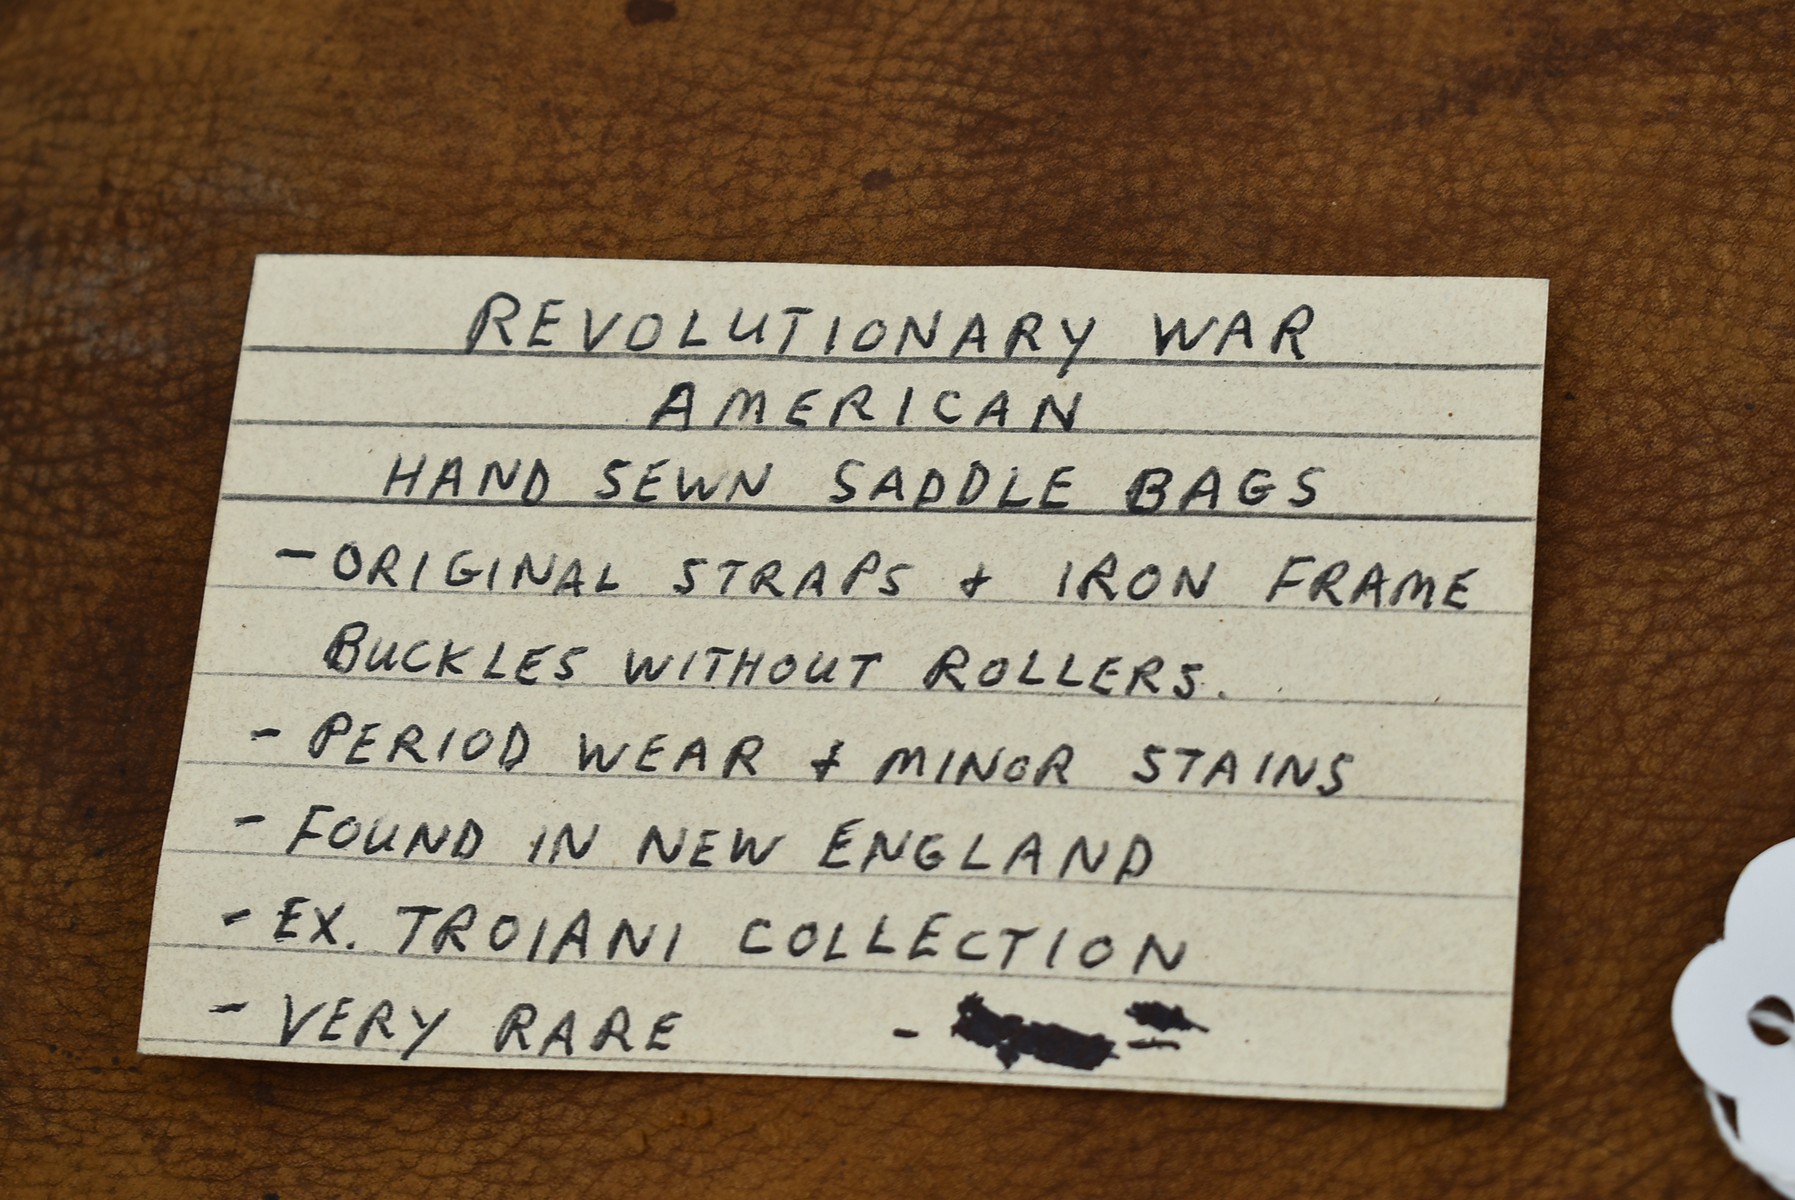 REVOLUTIONARY WAR
AMERICAN
HAND SEWN SADDLE BAGS
- ORIGINAL STRAPS & IRON FRAME
BUCKLES WITHOUT ROLLERS.
- PERIOD WEAR & MINOR STAINS
- FOUND IN NEW ENGLAND
- EX. TROIANI COLLECTION
- VERY RARE -